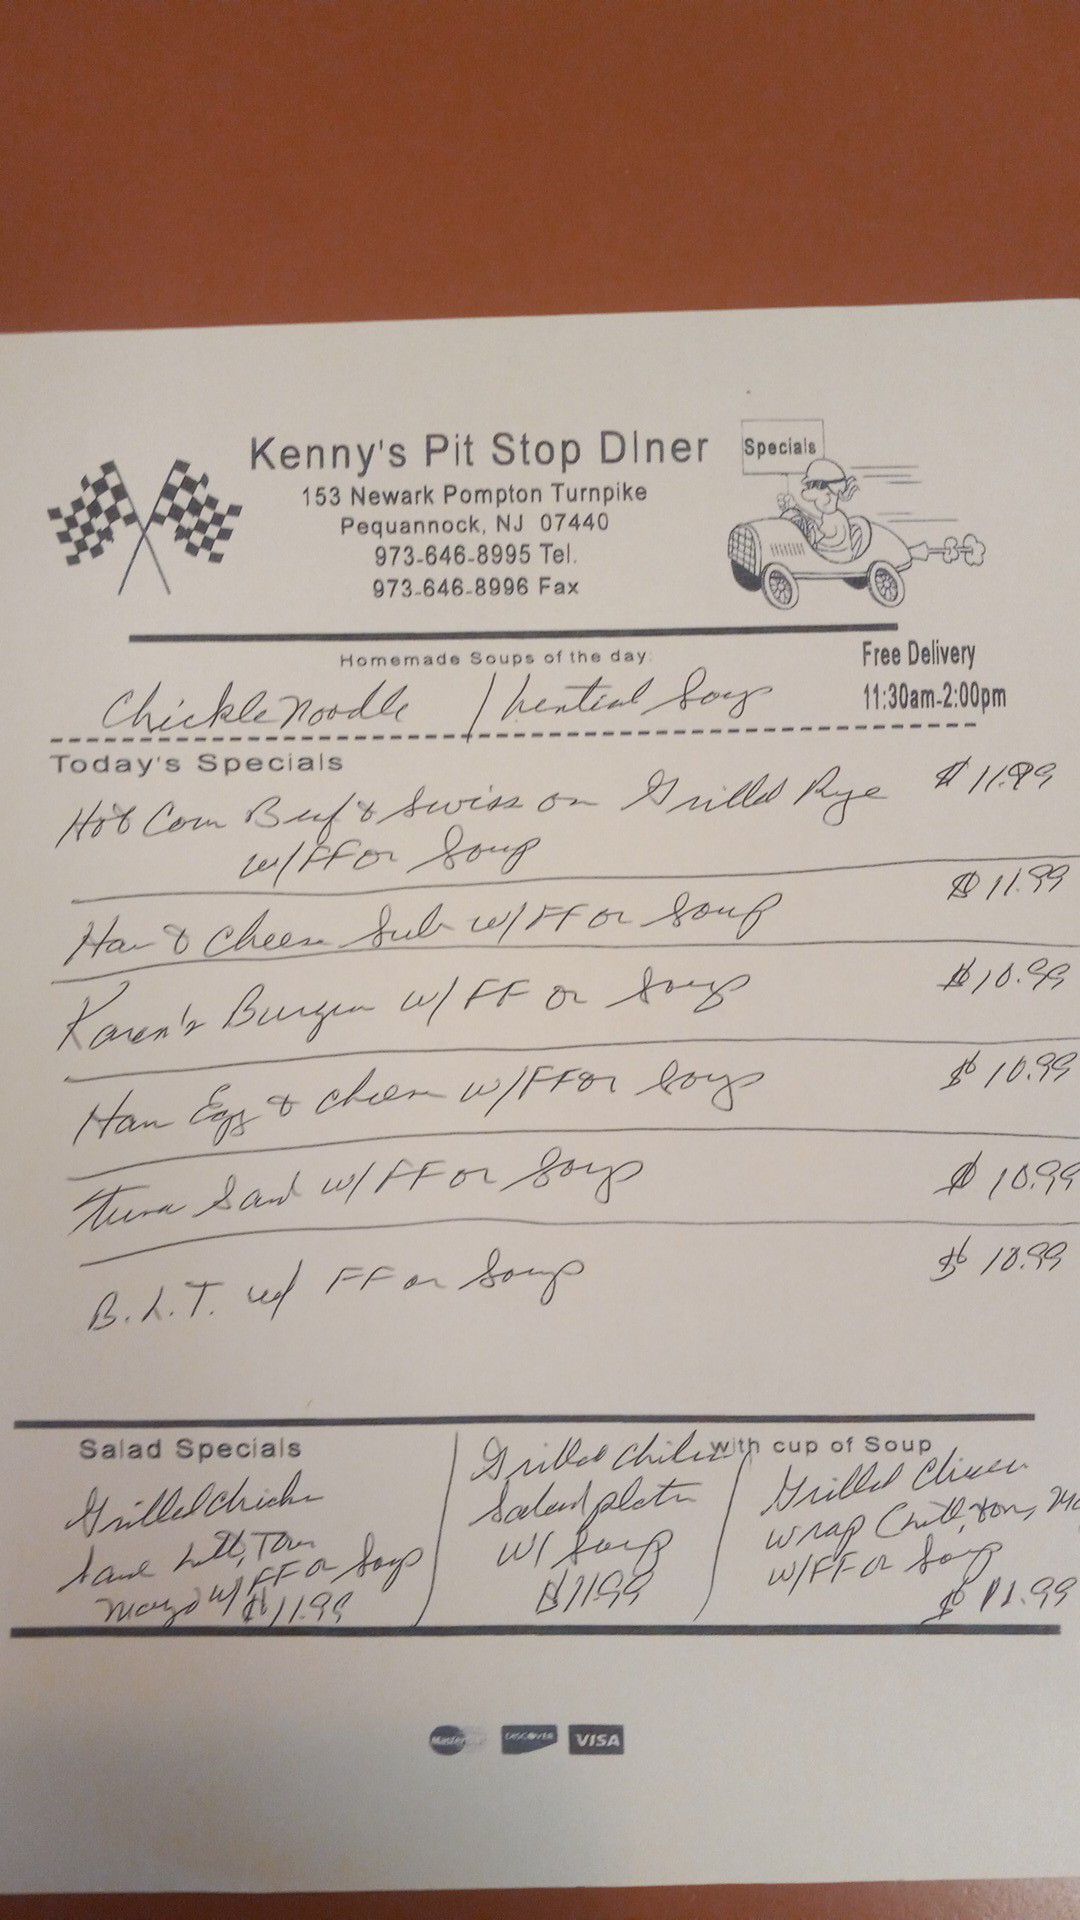 Kenny's Pit Stop DIner
Specials
153 Newark Pompton Turnpike
Pequannock, NJ 07440
973-646-8995 Tel.
973-646-8996 Fax
Homemade Soups of the day:
Free Delivery
11:30am-2:00pm
Chickle Noodle / Lential Soup
Today's Specials
Hot Corn Beef & Swiss on Grilled Rye $11.99
w/FF or Soup
Ham & Cheese Sub w/FF or Soup $11.99
Karen's Burger w/ FF or Soup $10.99
Ham Egg & Cheese w/FF or Soup $10.99
Tuna Sand w/ FF or Soup $10.99
B.L.T. w/ FF or Soup $10.99
Salad Specials
with cup of Soup
Grilled Chicken
Sand Lett, Tom
Mayo w/ FF or Soup
$11.99
Grilled Chicken
Salad platter
w/ Soup
$11.99
Grilled Chicken
wrap Lett, tom,
w/FF or Soup
$11.99
Master
DISCOVER
VISA